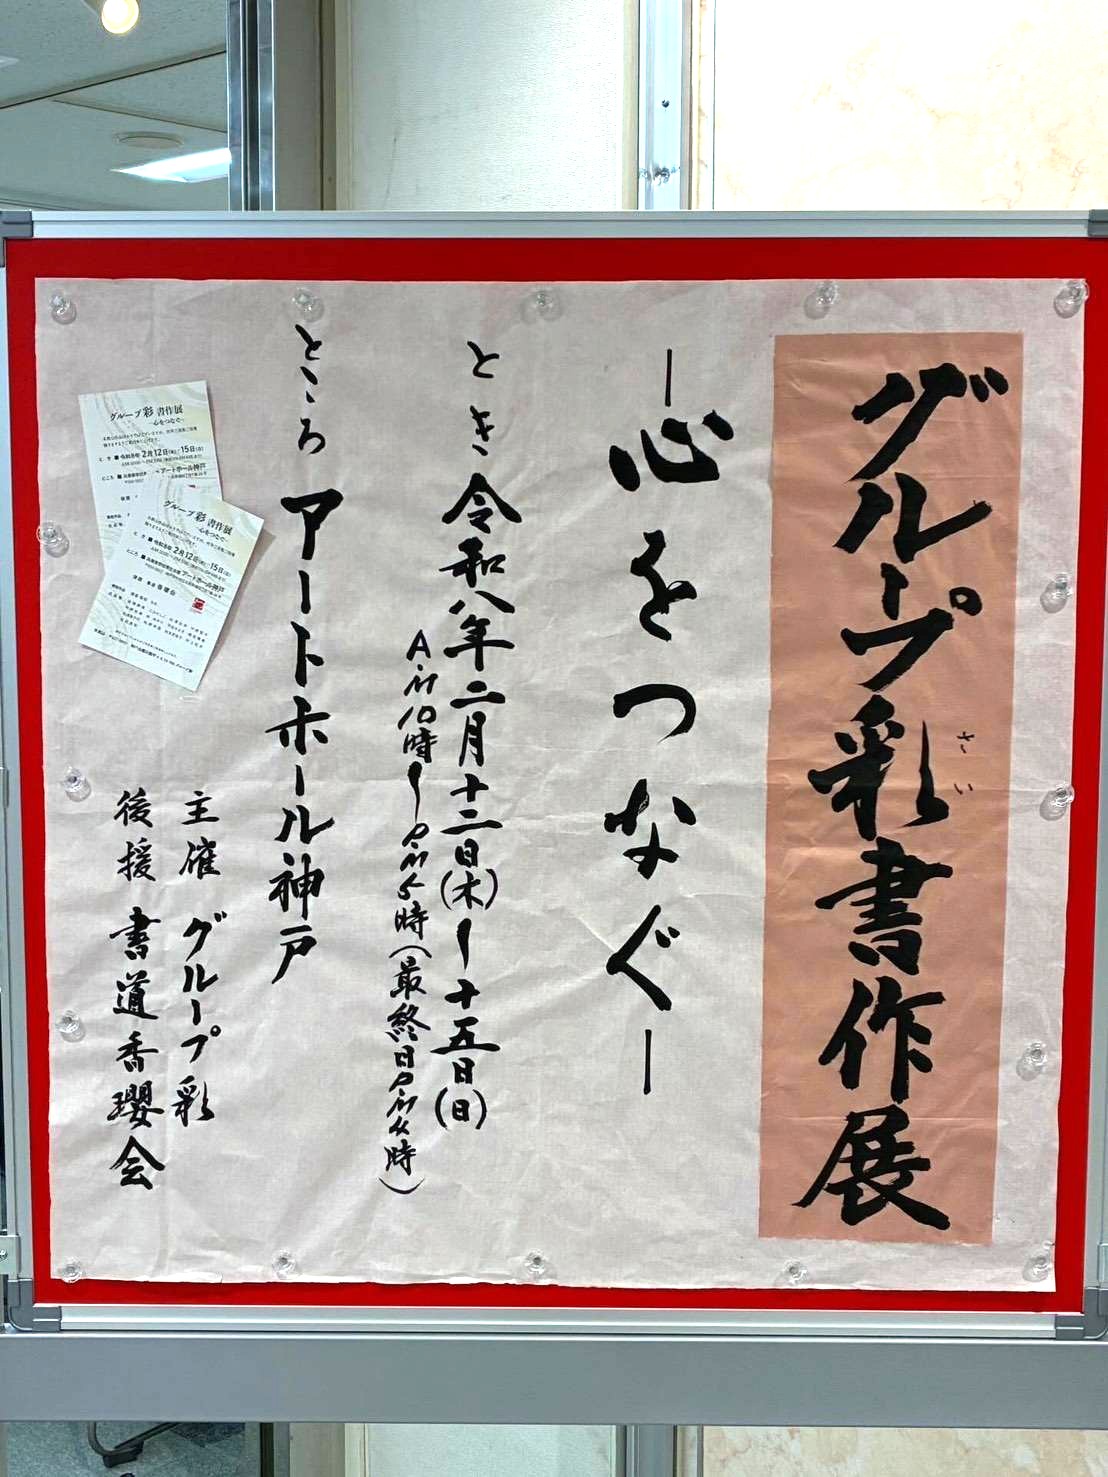 グループ彩書作展
さい
―心をつなぐ―
とき 令和八年二月十二日(木)〜十五日(日)
A.M10時〜P.M5時(最終日P.M4時)
ところ アートホール神戸
主催 グループ彩
後援 書道香瓔会
グループ彩 書作展
~心をつなぐ~
とき ■ 令和8年 2月12日(木)〜15日(日)
ところ ■
アートホール神戸
グループ彩 書作展
~心をつなぐ~
とき ■ 令和8年 2月12日(木)〜15日(日)
ところ ■
アートホール神戸